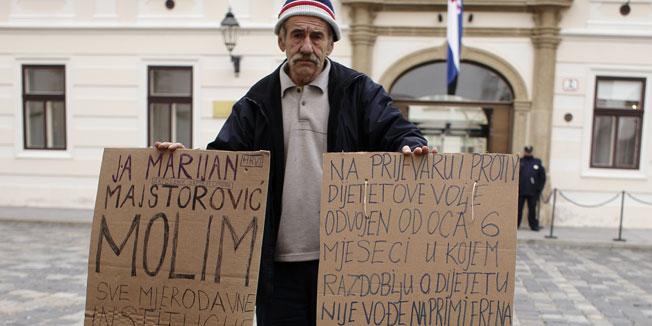 JA MARIJAN HRVI
MAJSTOROVIĆ
MOLIM
SVE MJERODAVNE
INSTITUCIJE
NA PRIJEVARU I PROTIV
DIJETETOVE VOLJE
ODVOJEN OD OCA 6
MJESECI U KOJEM
RAZDOBLJU O DIJETETU
NIJE VOĐENA PRIMJERENA